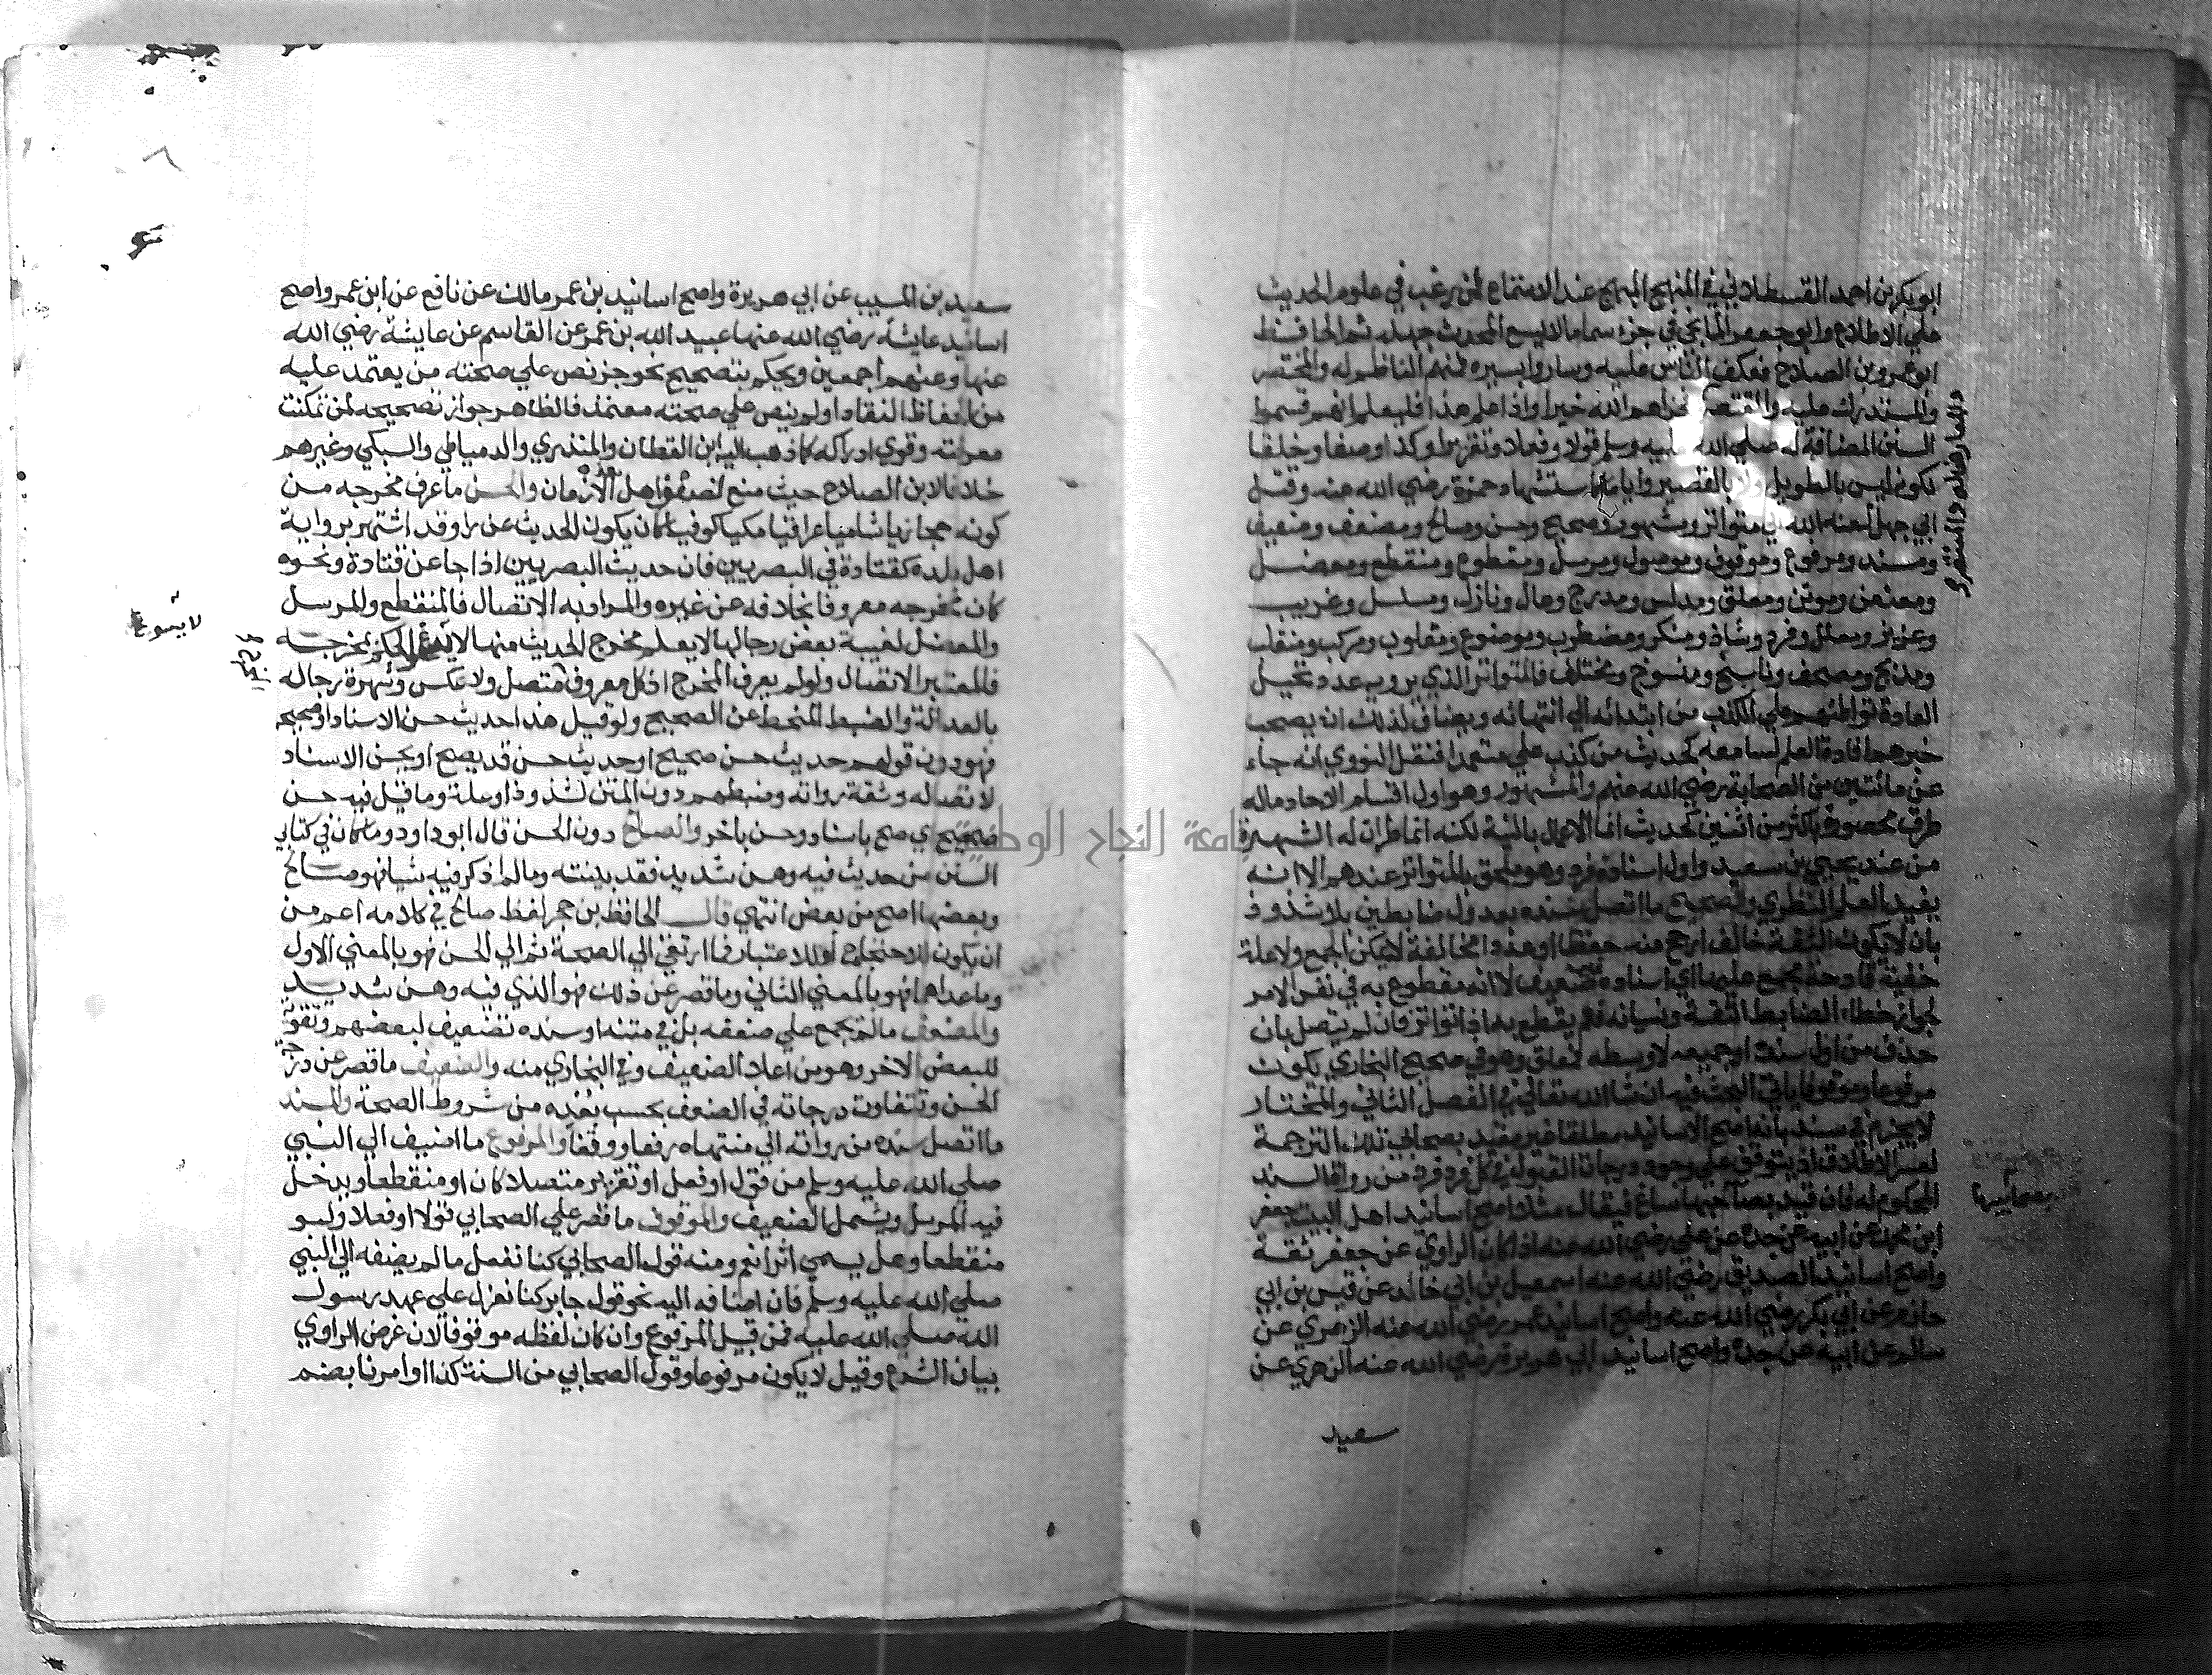 ابو بكر بن احمد القسطلاني في المنهج المبهج عند الاستماع لمن رغب في علوم الحديث
علي الاطلاع وابو جعفر الميانجي في جزء سماه ما لا يسع المحدث جهله ثم الحافظ
ابو عمرو بن الصلاح فعكف الناس عليه وساروا بسيره فمنهم الناظم له والمختصر
والمستدرك عليه والمقتصر فجزاهم الله خيرا واذا علم هذا فليعلم انهم قسموا
السنن المضافة له صلي الله عليه وسلم قولا وفعلا وتقريرا وكذا وصفا وخلقا
ككونه ليس بالطويل ولا بالقصير واياما كاستشهاد حمزة رضي الله عنه وقتل
ابي جهل لعنه الله الي متواتر ومشهور وصحيح وحسن وصالح ومضعف وضعيف
ومسند ومرفوع وموقوف وموصول ومرسل ومقطوع ومنقطع ومعضل
ومعنعن ومؤنن ومعلق ومدلس ومدرج وعال ونازل ومسلسل وغريب
وعزيز ومعلل وفرد وشاذ ومنكر ومضطرب وموضوع ومقلوب ومركب ومنقلب
ومدبج ومصحف وناسخ ومنسوخ ومختلف فالمتواتر الذي يرويه عدد تحيل
العادة تواطئهم علي الكذب من ابتدائه الي انتهائه ويضاف لذلك ان يصحب
خبرهم افادة العلم لسامعه كحديث من كذب علي متعمدا فنقل النووي انه جاء
عن مائتين من الصحابة رضي الله عنهم والمشهور وهو اول اقسام الاحاد ماله
طرق محصورة باكثر من اثنين كحديث انما الاعمال بالنية لكنه انما طرات له الشهرة
من عند يحيي بن سعيد واول اسناده فرد وهو ملحق بالمتواتر عندهم الا انه
يفيد العلم النظري والصحيح ما اتصل سنده بعدول ضابطين بلا شذوذ
بان لا يكون الثقة خالف ارجح منه حفظا او عددا مخالفة لا يمكن الجمع ولا علة
خفية قادحة مجمع عليها اي اسناده ضعيف لا انه مقطوع به في نفس الامر
لجواز خطاء الضابط الثقة ونسيانه نعم يقطع به اذا تواتر فان لم يتصل بان
حذف من اول سنده او جميعه لا وسطه فمعلق وهو في صحيح البخاري يكون
مرفوعا وموقوفا ياتي البحث فيه ان شا الله تعالي في الفصل الثاني والمختار
لا يجزم في سند بانه اصح الاسانيد مطلقا غير مقيد بصحابي تلك الترجمة
لعسر الاطلاق اذ يتوقف علي وجود درجات القبول في كل فرد فرد من رواة السند
المحكوم له فان قيد بصاحبها ساغ فيقال مثلا اصح اسانيد اهل البيت جعفر
ابن محمد عن ابيه عن جده عن علي رضي الله عنه اذا كان الراوي عن جعفر ثقة
واصح اسانيد الصديق رضي الله عنه اسمعيل بن ابي خالد عن قيس بن ابي
حازم عن ابي بكر رضي الله عنه واصح اسانيد عمر رضي الله عنه الزهري عن
سالم عن ابيه عن جده واصح اسانيد ابي هريرة رضي الله عنه الزهري عن
سعيد
بصحابيها
سعيد بن المسيب عن ابي هريرة واصح اسانيد بن عمر مالك عن نافع عن ابن عمر واصح
اسانيد عايشة رضي الله عنها عبيد الله بن عمر عن القاسم عن عايشة رضي الله
عنها وعنهم اجمعين ويحكم بتصحيح نحو جزء نص علي صحته من يعتمد عليه
من الحفاظ النقاد او لم ينص علي صحته معتمد فالظاهر جواز تصحيحه لمن تمكنت
معرفته وقوي ادراكه كما ذهب اليه ابن القطان والمنذري والدمياطي والسبكي وغيرهم
خلافا لابن الصلاح حيث منع لضعف اهل الازمان والحسن ما عرف مخرجه من
كونه حجازيا شاميا عراقيا مكيا كوفيا كان يكون الحديث عن راو قد اشتهر برواية
اهل بلده كقتادة في البصريين فان حديث البصريين اذا جا عن قتادة ونحوه
كان مخرجه معروفا بخلافه عن غيره والمراد به الاتصال فالمنقطع والمرسل
والمعضل لغيبة بعض رجالها لا يعلم مخرج الحديث منها لا يسوغ الحكم بمخرجه
فالمعتبر الاتصال ولو لم يعرف المخرج اذ كل معروف متصل ولا عكس وشهرة رجاله
بالعدالة والضبط المنحط عن الصحيح ولو قيل هذا حديث حسن الاسناد او صحيحه
فهو دون قولهم حديث حسن صحيح او حديث حسن قد يصح او يحسن الاسناد
لاتصاله وثقة رواته وضبطهم دون المتن لشذوذ او علة وما قيل فيه حسن
صحيح اي صح باسناد وحسن باخر والصالح دون الحسن قال ابو داود وما كان في كتابي
السنن من حديث فيه وهن شديد فقد بينته وما لم اذكر فيه شيا فهو صالح
وبعضها اصح من بعض انتهي قال الحافظ بن حجر لفظ صالح في كلامه اعم من
ان يكون للاحتجاج او للاعتبار فما ارتقي الي الصحة ثم الي الحسن فهو بالمعني الاول
وما عداهما فهو بالمعني الثاني وما قصر عن ذلك فهو الذي فيه وهن شديد
والمضعف ما لم يجمع علي ضعفه بل في متنه او سنده تضعيف لبعضهم وتقوية
للبعض الاخر وهو من اعلا الضعيف وفي البخاري منه والضعيف ما قصر عن درجة
الحسن وتتفاوت درجاته في الضعف بحسب بعده من شروط الصحة والمسند
ما اتصل سنده من رواته الي منتهاه رفعا ووقفا والمرفوع ما اضيف الي النبي
صلي الله عليه وسلم من قول او فعل او تقرير متصلا كان او منقطعا ويدخل
فيه المرسل ويشمل الضعيف والموقوف ما قصر علي الصحابي قولا او فعلا ولو
منقطعا وهل يسمي اثرا نعم ومنه قول الصحابي كنا نفعل ما لم يضفه الي النبي
صلي الله عليه وسلم فان اضافه اليه نحو قول جابر كنا نعزل علي عهد رسول
الله صلي الله عليه فمن قبيل المرفوع وان كان لفظه موقوفا لان غرض الراوي
بيان الشرع وقيل لا يكون مرفوعا وقول الصحابي من السنة كذا او امرنا بضم
لا يسوغ
جامعة النجاح الوطنية